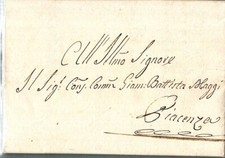 All'Illmo Signore
Il Sigr Cons. Com. Giam: Battista Maggi
Piacenza